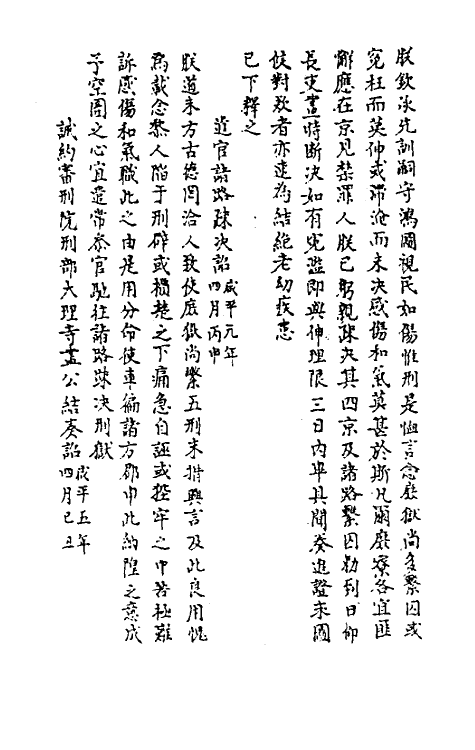 朕欽承先訓嗣守鴻圖視民如傷惟刑是恤言念庶獄尚多繫囚或
冤枉而莫伸或滯淹而未決感傷和氣莫甚於斯凡爾庶寮各宜匪
懈應在京見禁罪人朕已躬親疎决其四京及諸路繫囚勑到日仰
長吏晝時断決如有冤濫即與伸理限三日内畢具聞奏追證未圓
候對欵者亦速為結絶老幼疾患
已下釋之
遣官諸路疎决詔咸平元年四月丙申
朕道未方古德罔洽人致使庶獄尚繫五刑未措興言及此良用愧
焉載念黎人陷于刑辟或搒楚之下痛急自誣或狴牢之中苦極難
訴感傷和氣職此之由是用分命使車徧諸方郡申此納隍之意成
予空圄之心宜遣常叅官馳往諸路踈决刑獄
誡約審刑院刑部大理寺盡公結奏詔咸平五年四月己丑